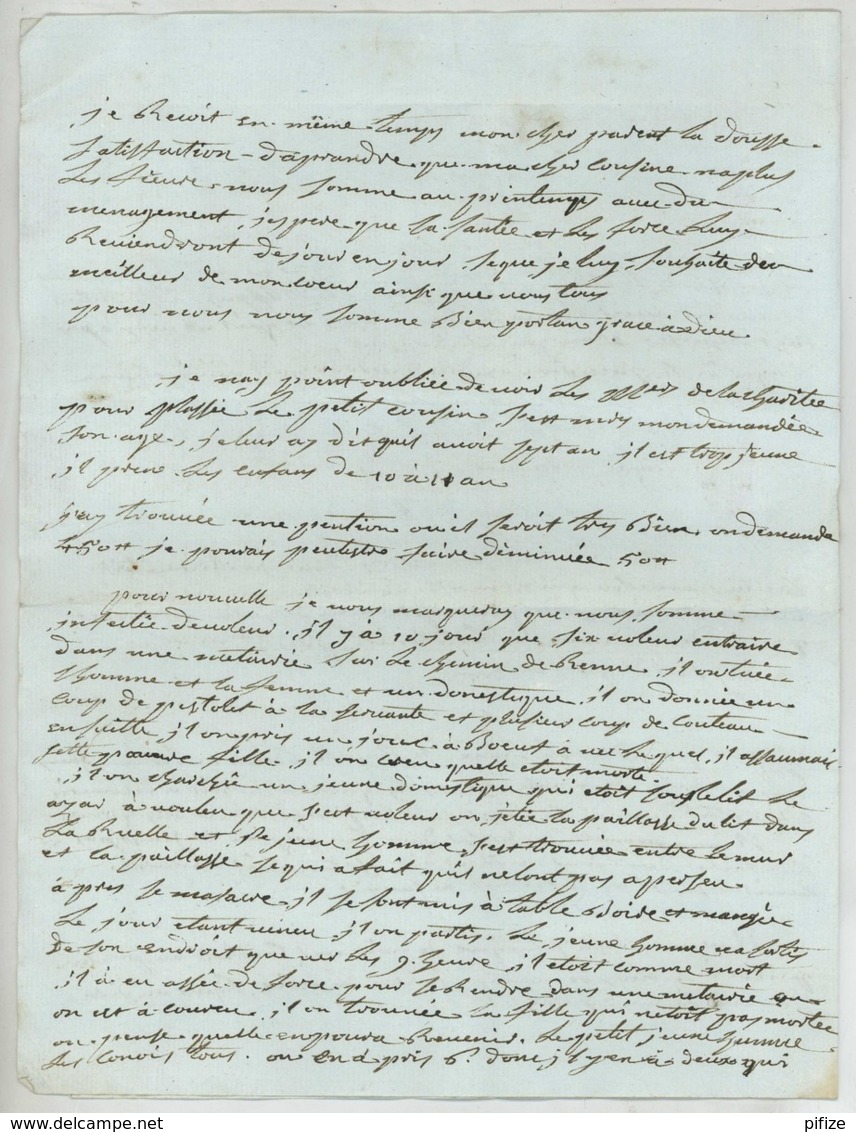 je Recoit en même temps mon cher parent la dousse
satisfaction daprandre que ma cher cousine na plus
les fievre nous somme au printemps avec du
menagement, jespere que la santée et les force luy
Reviendront de jour en jour se que je luy souhaite du
meilleur de mon coeur ainsi que vous tous
pour nous nous somme Bien portan grace à Dieu

je nay point oubliée de voir les de la Charitée
pour plassée le petit cousin mon demandée
son age, je leur ay dit quil avoit sept an il est trop jeune
il prene les enfans de 10 à 11 an

jay trouvée une pention ou il seroit tres Bien on demande
450# je pourais peutestre faire deminuée 50#

pour nouvelle je vous marqueray que nous somme
infectée de voleur, il y à 10 jour que six voleur entraire
dans une métairie sur le chemin de Renne, il on tuée
lhomme et la femme et un domestique, il on donnée un
coup de pistolet à la servante et plusieur coup de couteau
ensuitte il on pris un jouc à Boeuf avec lequel, il assaumair
sette pauvre fille, il on creu quelle etoit morte
il on charchée un jeune domestique qui etoit sous le lit le
azar à voulu que sest voleur on jetée la paillasse du lit dans
la Ruelle et se jeune homme sest trouvée entre le mur
et la paillasse se qui a fait quis ne lont pas apperseu
à pres se masacre, il se sont mis à table Boire et mangée
le jour etant venu il on partis. le jeune homme na sortis
de son endroit que ver les 9. heure, il etoit comme mort
il à eu assée de force pour se Rendre dans une metairie
on est à couru, il on trouvée la fille qui netoit pas mortee
on pense quelle en poura Revenir. le petit jeune humme
les conois tous. on en a pris 6. donc il y en à deux qui

pifize